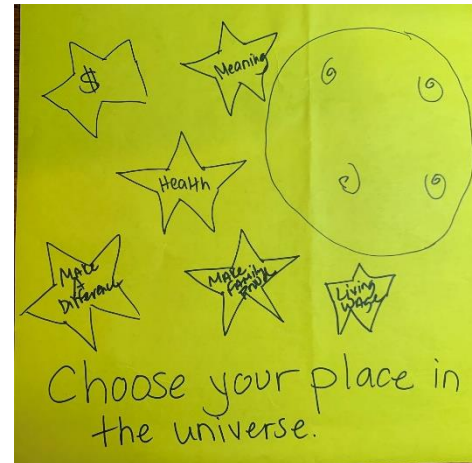 $
Meaning
Health
MAKE
A
Difference
MAKE
FAMILY
PROUD
Living
WAGE
Choose your place in
the universe.